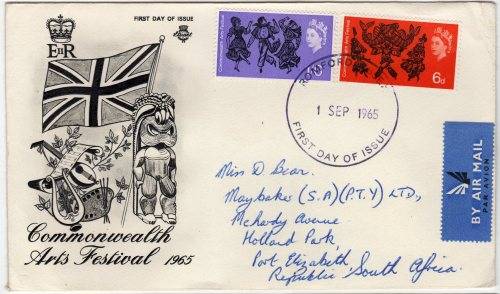 FIRST DAY OF ISSUE
EIIR
Commonwealth Arts Festival 1965
Commonwealth Arts Festival 1965
6d
ROMFORD
1 SEP 1965
FIRST DAY OF ISSUE
BY AIR MAIL
PAR AVION
Miss D Bear.
Maybaker (S.A) (P.T.Y) LTD,
Mchardy Avenue
Holland Park,
Port Elizabeth
Republic South Africa.
Commonwealth
Arts Festival 1965